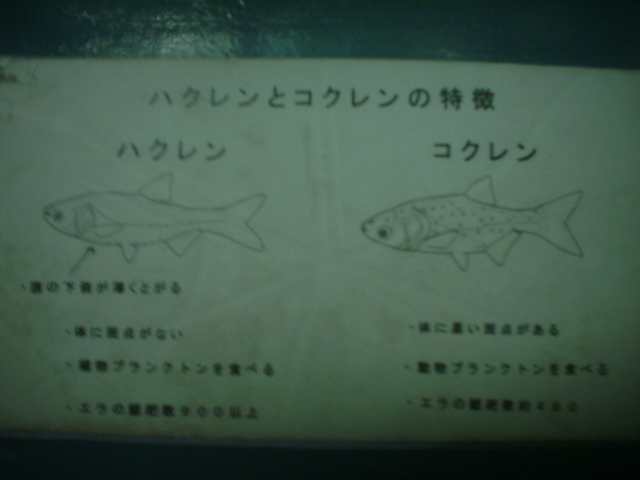 ハクレンとコクレンの特徴
ハクレン
コクレン
・腹の下側が薄くとがる
・体に斑点がない
・植物プランクトンを食べる
・エラの鰓耙数900以上
・体に黒い斑点がある
・動物プランクトンを食べる
・エラの鰓耙数約